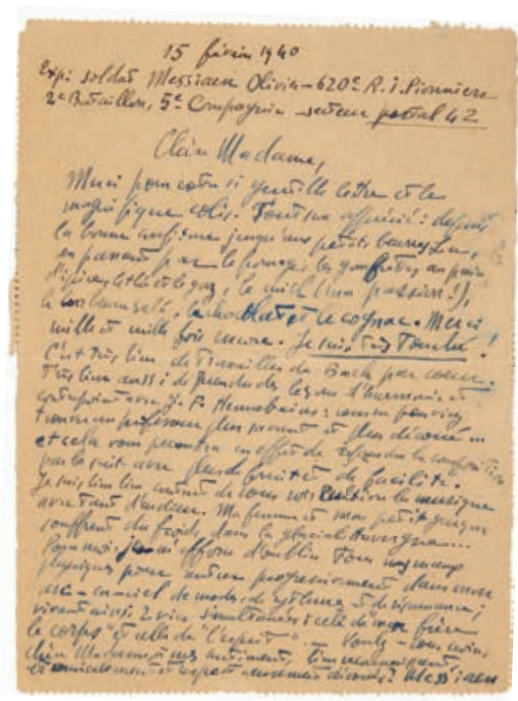 15 février 1940
Exp: soldat Messiaen Olivier – 620e R.I. Pionniers
2e Bataillon, 5e Compagnie – secteur postal 42
Chère Madame,
Merci pour votre si gentille lettre et le
magnifique colis. Tout sera apprécié: depuis
la bonne confiture jusqu'aux petits beurre
en passant par le fromage, les gaufrettes, au pain
d'épices, le miel (ma passion!),
le chocolat, et le cognac. Merci
mille et mille fois encore. Je suis très touché!
C'est très bien de travailler du Bach par coeur.
Très bien aussi de prendre des leçons d'harmonie et
contrepoint avec J. P. Hennebains: comme
trouver un professeur plus savant et plus dévoué...
et cela vous permettra en effet de reprendre la composition
par la suite avec plus de facilité.
Je suis bien content de vous voir la musique
avec tant d'ardeur. Ma femme et mon petit garçon
souffrent du froid dans la glaciale Auvergne...
Pour moi, je m'efforce d'oublier tous mes maux
physiques pour entrer progressivement dans mon
arc-en-ciel de modes, de rythmes et de résonances;
vivant ainsi 2 vies simultanées: celle de mon frère
le corps" et celle de "l'esprit". – Voulez-vous croire,
chère Madame, à mes sentiments, bien
et respectueusement dévoués? Messiaen